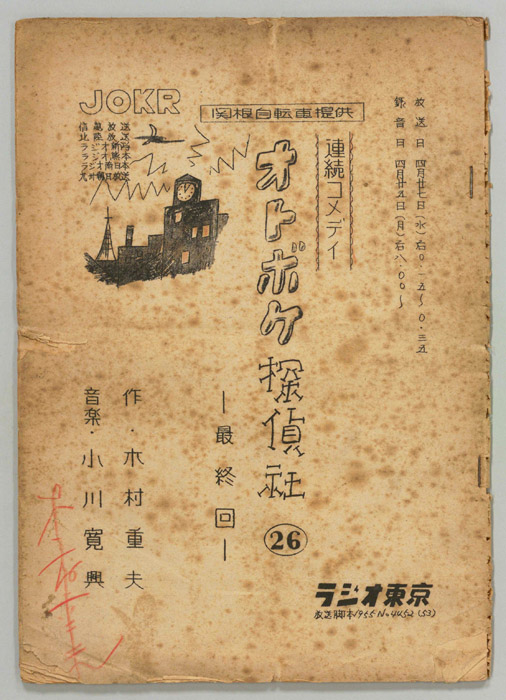 放送日 四月廿七日(水)右0.一五〜0.三五
録音日 四月廿五日(月)右八.00〜
関根自転車提供
JOKR
連続コメディ
オトボケ探偵社
26
—最終回—
作・木村重夫
音楽・小川寛興
ラジオ東京
放送脚本1955 No 4452 (53)